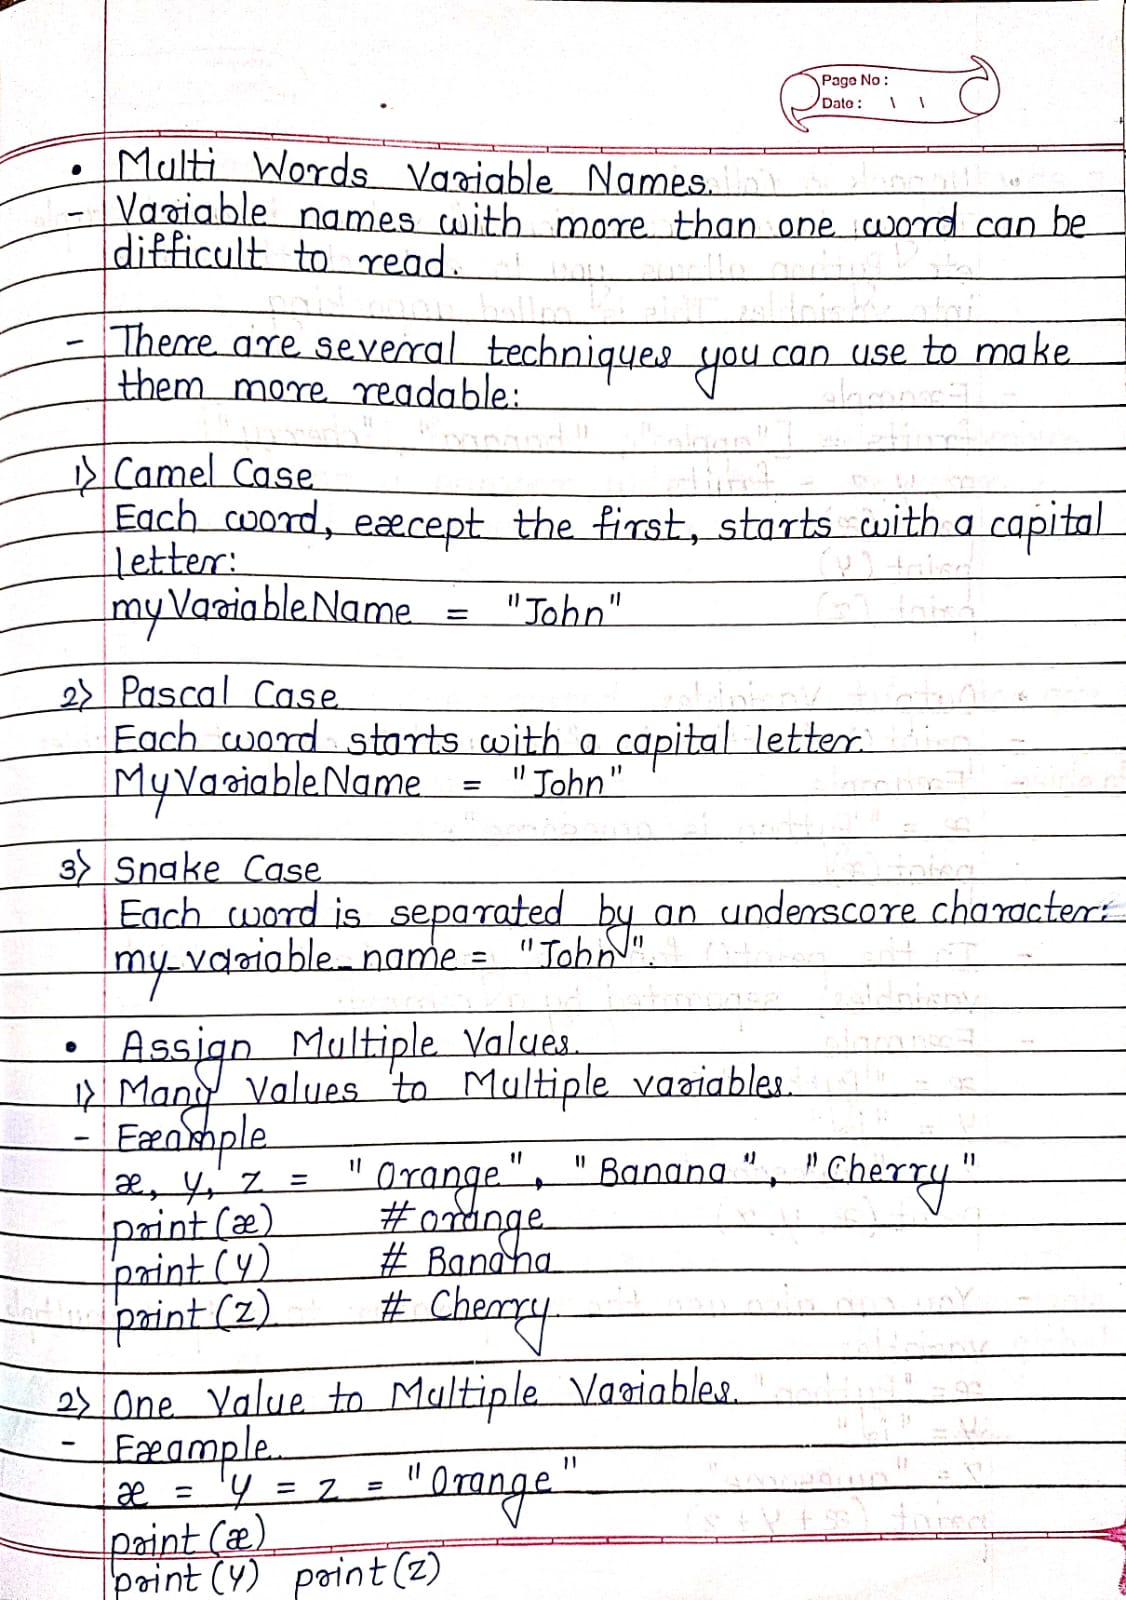 Page No :
Date : \ \
• Multi Words Variable Names.
- Variable names with more than one word can be
difficult to read.
- There are several techniques you can use to make
them more readable:
1) Camel Case
Each word, except the first, starts with a capital
letter:
myVariableName = "John"
2) Pascal Case
Each word starts with a capital letter.
MyVariableName = "John"
3) Snake Case
Each word is separated by an underscore character:
my_variable_name = "John".
• Assign Multiple Values.
1) Many Values to Multiple variables.
- Example
x, y, z = "Orange", "Banana", "Cherry"
print(x) #orange
print(y) # Banana
print(z) # Cherry.
2) One Value to Multiple Variables.
- Example.
x = y = z = "Orange"
print(x)
print(y) print(z)